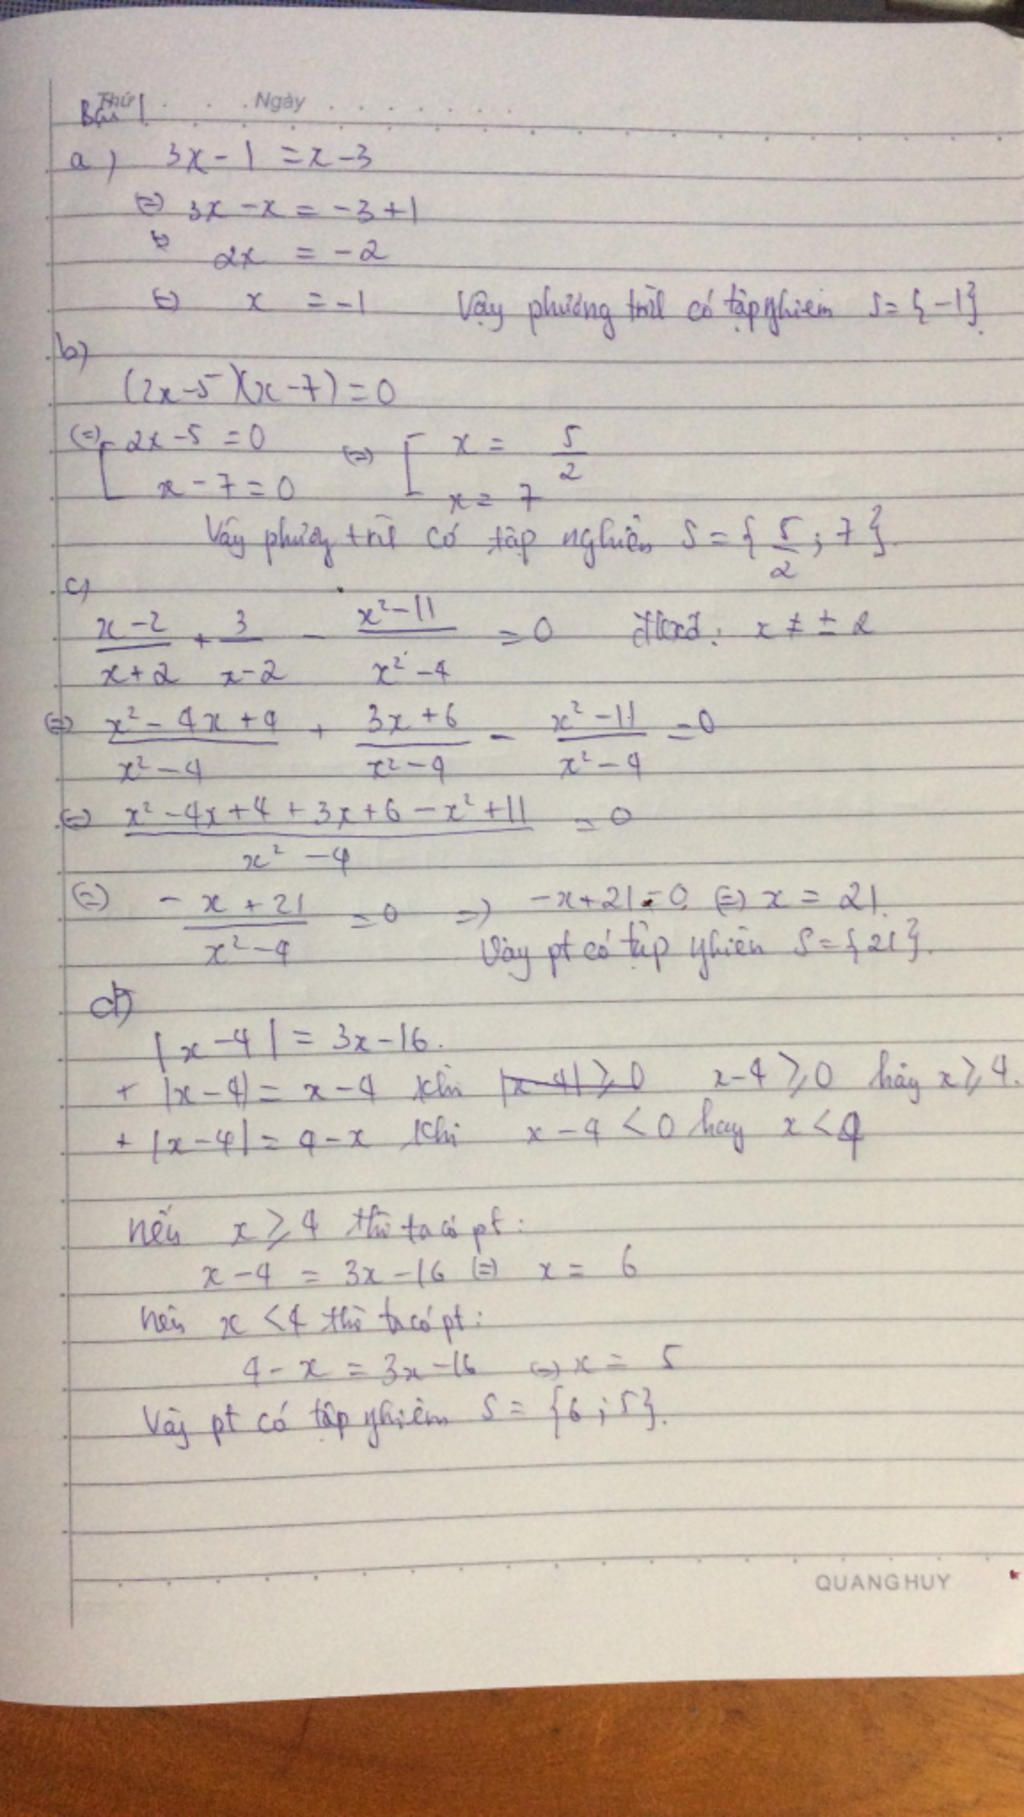 Thứ Ngày
Bài 1
a) 3x - 1 = x - 3
(=) 3x - x = -3 + 1
2x = -2
(=) x = -1 Vậy phương trìl có tập nghiem S = {-1}
b)
(2x - 5)(x - 7) = 0
(=) [ 2x - 5 = 0 (=) [ x = 5/2
x - 7 = 0 x = 7
Vậy phương trìl có tập nghiên S = {5/2; 7}.
c)
(x-2)/(x+2) + 3/(x-2) - (x²-11)/(x²-4) = 0 đkxđ: x ≠ ± 2
(=) (x² - 4x + 4)/(x² - 4) + (3x + 6)/(x² - 4) - (x² - 11)/(x² - 4) = 0
(=) (x² - 4x + 4 + 3x + 6 - x² + 11)/(x² - 4) = 0
(=) (-x + 21)/(x² - 4) = 0 =) -x + 21 = 0 (=) x = 21.
Vậy pt có tập nghiên S = {21}.
d)
|x - 4| = 3x - 16.
+ |x - 4| = x - 4 khi |x - 4| ≥ 0 x - 4 ≥ 0 hay x ≥ 4.
+ |x - 4| = 4 - x khi x - 4 < 0 hay x < 4
nếu x ≥ 4 thì ta có pt:
x - 4 = 3x - 16 (=) x = 6
nếu x < 4 thì ta có pt:
4 - x = 3x - 16 (=) x = 5
Vậy pt có tập nghiệm S = {6; 5}.
QUANG HUY